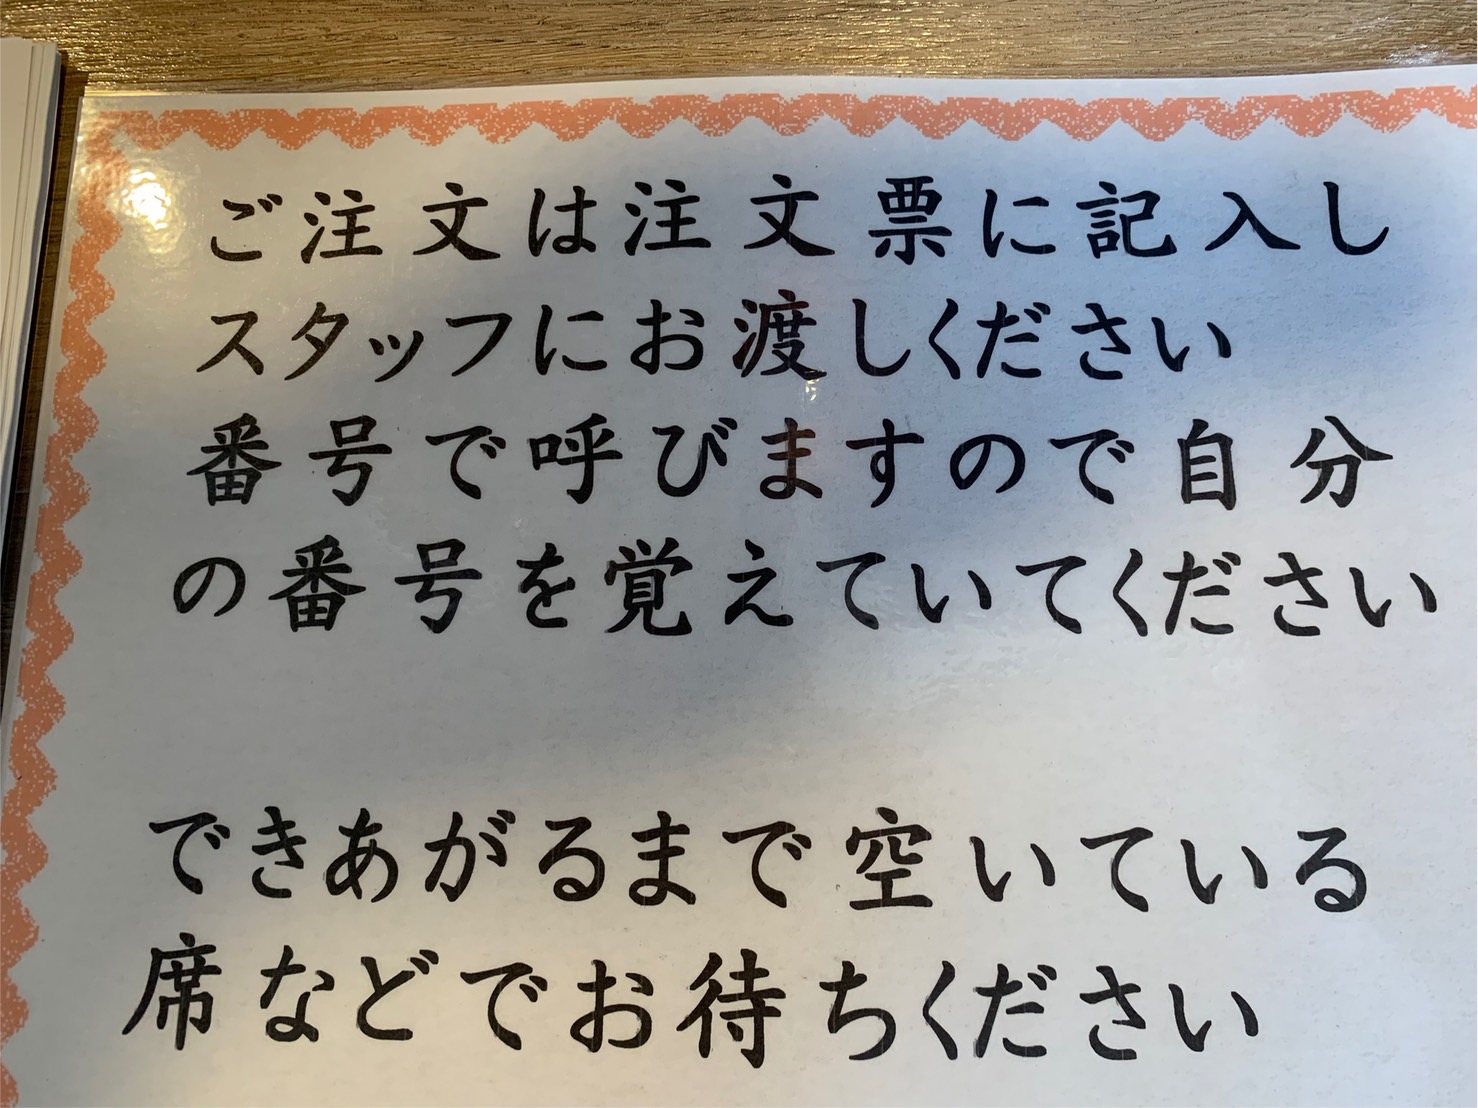 ご注文は注文票に記入し
スタッフにお渡しください
番号で呼びますので自分
の番号を覚えていてください
できあがるまで空いている
席などでお待ちください